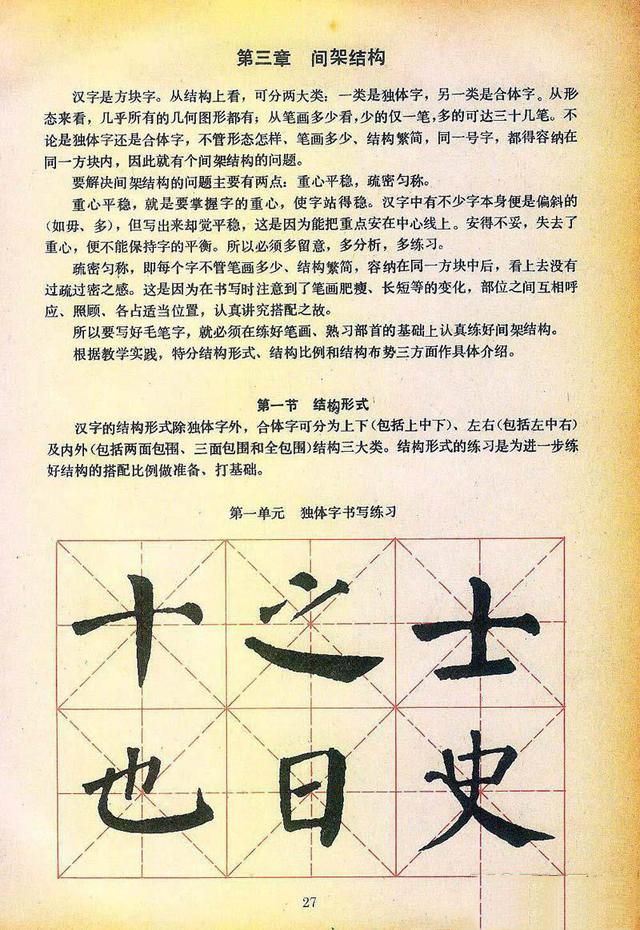 第三章 间架结构
汉字是方块字。从结构上看，可分两大类：一类是独体字，另一类是合体字。从形
态来看，几乎所有的几何图形都有；从笔画多少看，少的仅一笔，多的可达三十几笔。不
论是独体字还是合体字，不管形态怎样、笔画多少、结构繁简，同一号字，都得容纳在
同一方块内，因此就有个间架结构的问题。
要解决间架结构的问题主要有两点：重心平稳，疏密匀称。
重心平稳，就是要掌握字的重心，使字站得稳。汉字中有不少字本身便是偏斜的
(如毋、多)，但写出来却觉平稳，这是因为能把重点安在中心线上。安得不妥，失去了
重心，便不能保持字的平衡。所以必须多留意，多分析，多练习。
疏密匀称，即每个字不管笔画多少、结构繁简，容纳在同一方块中后，看上去没有
过疏过密之感。这是因为在书写时注意到了笔画肥瘦、长短等的变化，部位之间互相呼
应、照顾、各占适当位置，认真讲究搭配之故。
所以要写好毛笔字，就必须在练好笔画、熟习部首的基础上认真练好间架结构。
根据教学实践，特分结构形式、结构比例和结构布势三方面作具体介绍。
第一节 结构形式
汉字的结构形式除独体字外，合体字可分为上下(包括上中下)、左右(包括左中右)
及内外(包括两面包围、三面包围和全包围)结构三大类。结构形式的练习是为进一步练
好结构的搭配比例做准备、打基础。
第一单元 独体字书写练习
十之士
也日史
27